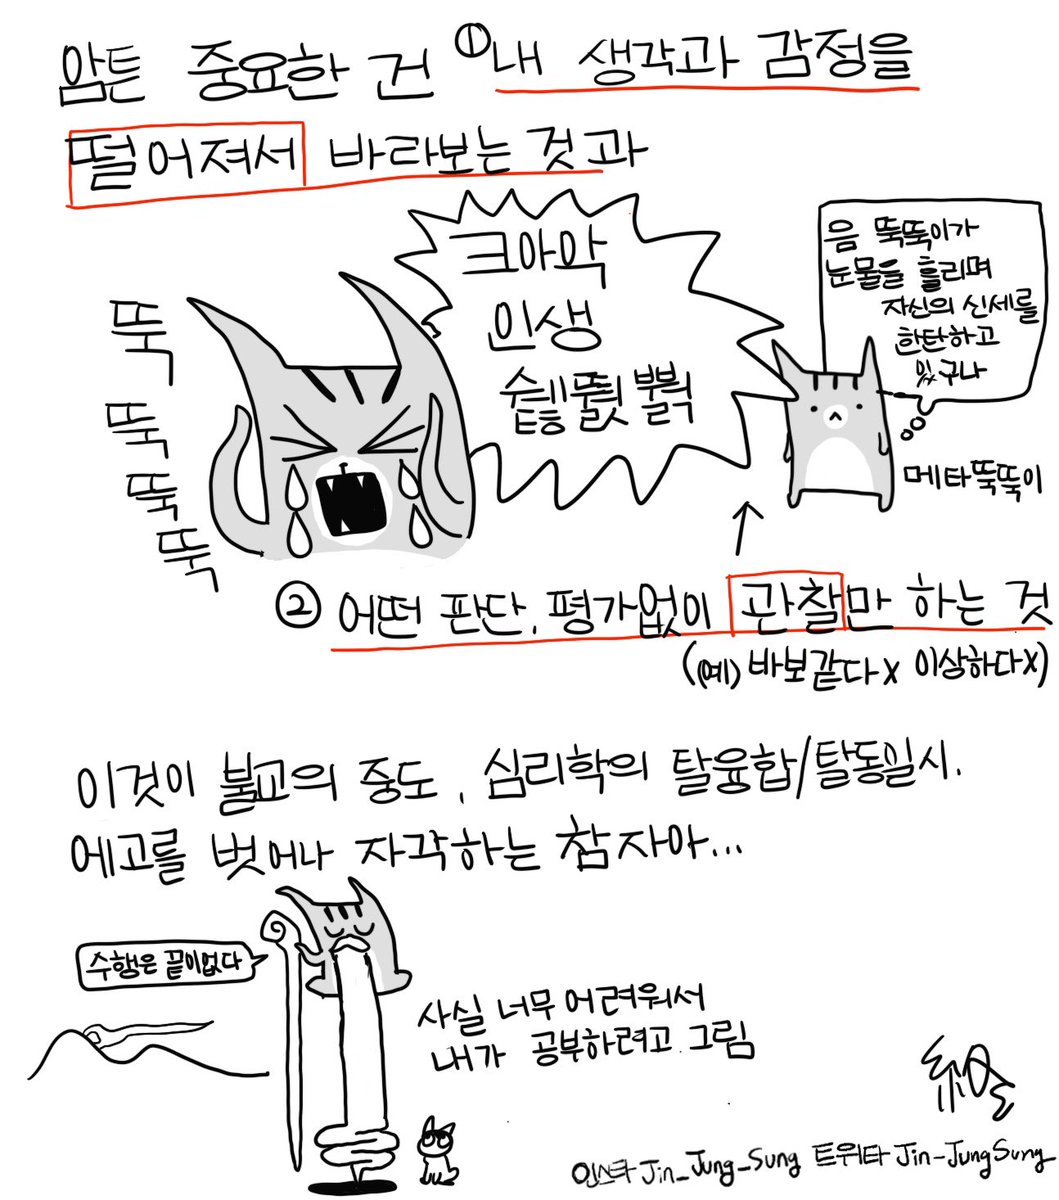 암튼 중요한 건 ①내 생각과 감정을
떨어져서 바라보는 것과
크아악
인생
음 뚝뚝이가
눈물을 흘리며
자신의 신세를
한탄하고
있구나
메타뚝뚝이
뚝
뚝
뚝
뚝
② 어떤 판단, 평가없이 관찰만 하는 것
((예) 바보같다X 이상하다X)
이것이 불교의 중도, 심리학의 탈융합/탈동일시.
에고를 벗어나 자각하는 참자아...
수행은 끝이없다
사실 너무 어려워서
내가 공부하려고 그림
인스타 Jin_Jung_Sung 트위타 Jin-JungSung